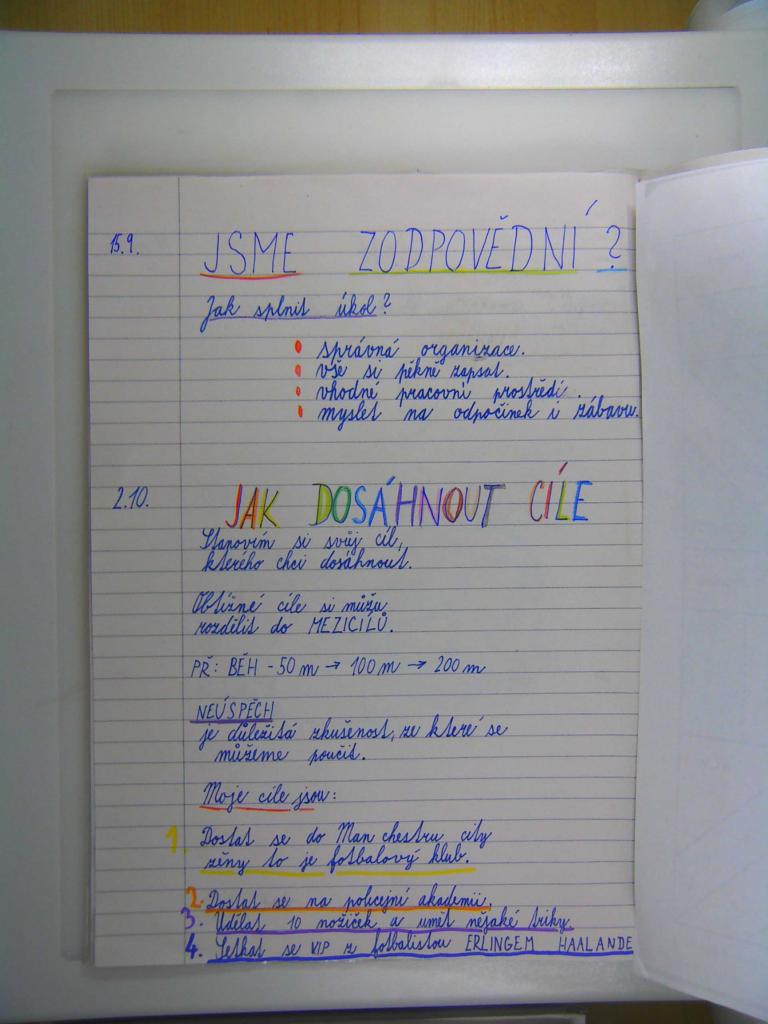 15.9. JSME ZODPOVĚDNÍ ?
Jak splnit úkol?
• správná organizace.
• vše si pěkně zapsat.
• vhodné pracovní prostředí.
• myslet na odpočinek i zábavu.
2.10. JAK DOSÁHNOUT CÍLE
Stanovím si svůj cíl,
kterého chci dosáhnout.
Obtížné cíle si můžu
rozdělit do MEZICÍLŮ.
PŘ: BĚH - 50 m → 100 m → 200 m
NEÚSPĚCH
je důležitá zkušenost, ze které se
můžeme poučit.
Moje cíle jsou:
1. Dostat se do Man chestru city
ženy to je fotbalový klub.
2. Dostat se na policejní akademii.
3. Udělat 10 nožiček a umět nějaké triky.
4. Setkat se VIP z fotbalistou ERLINGEM HAALANDE